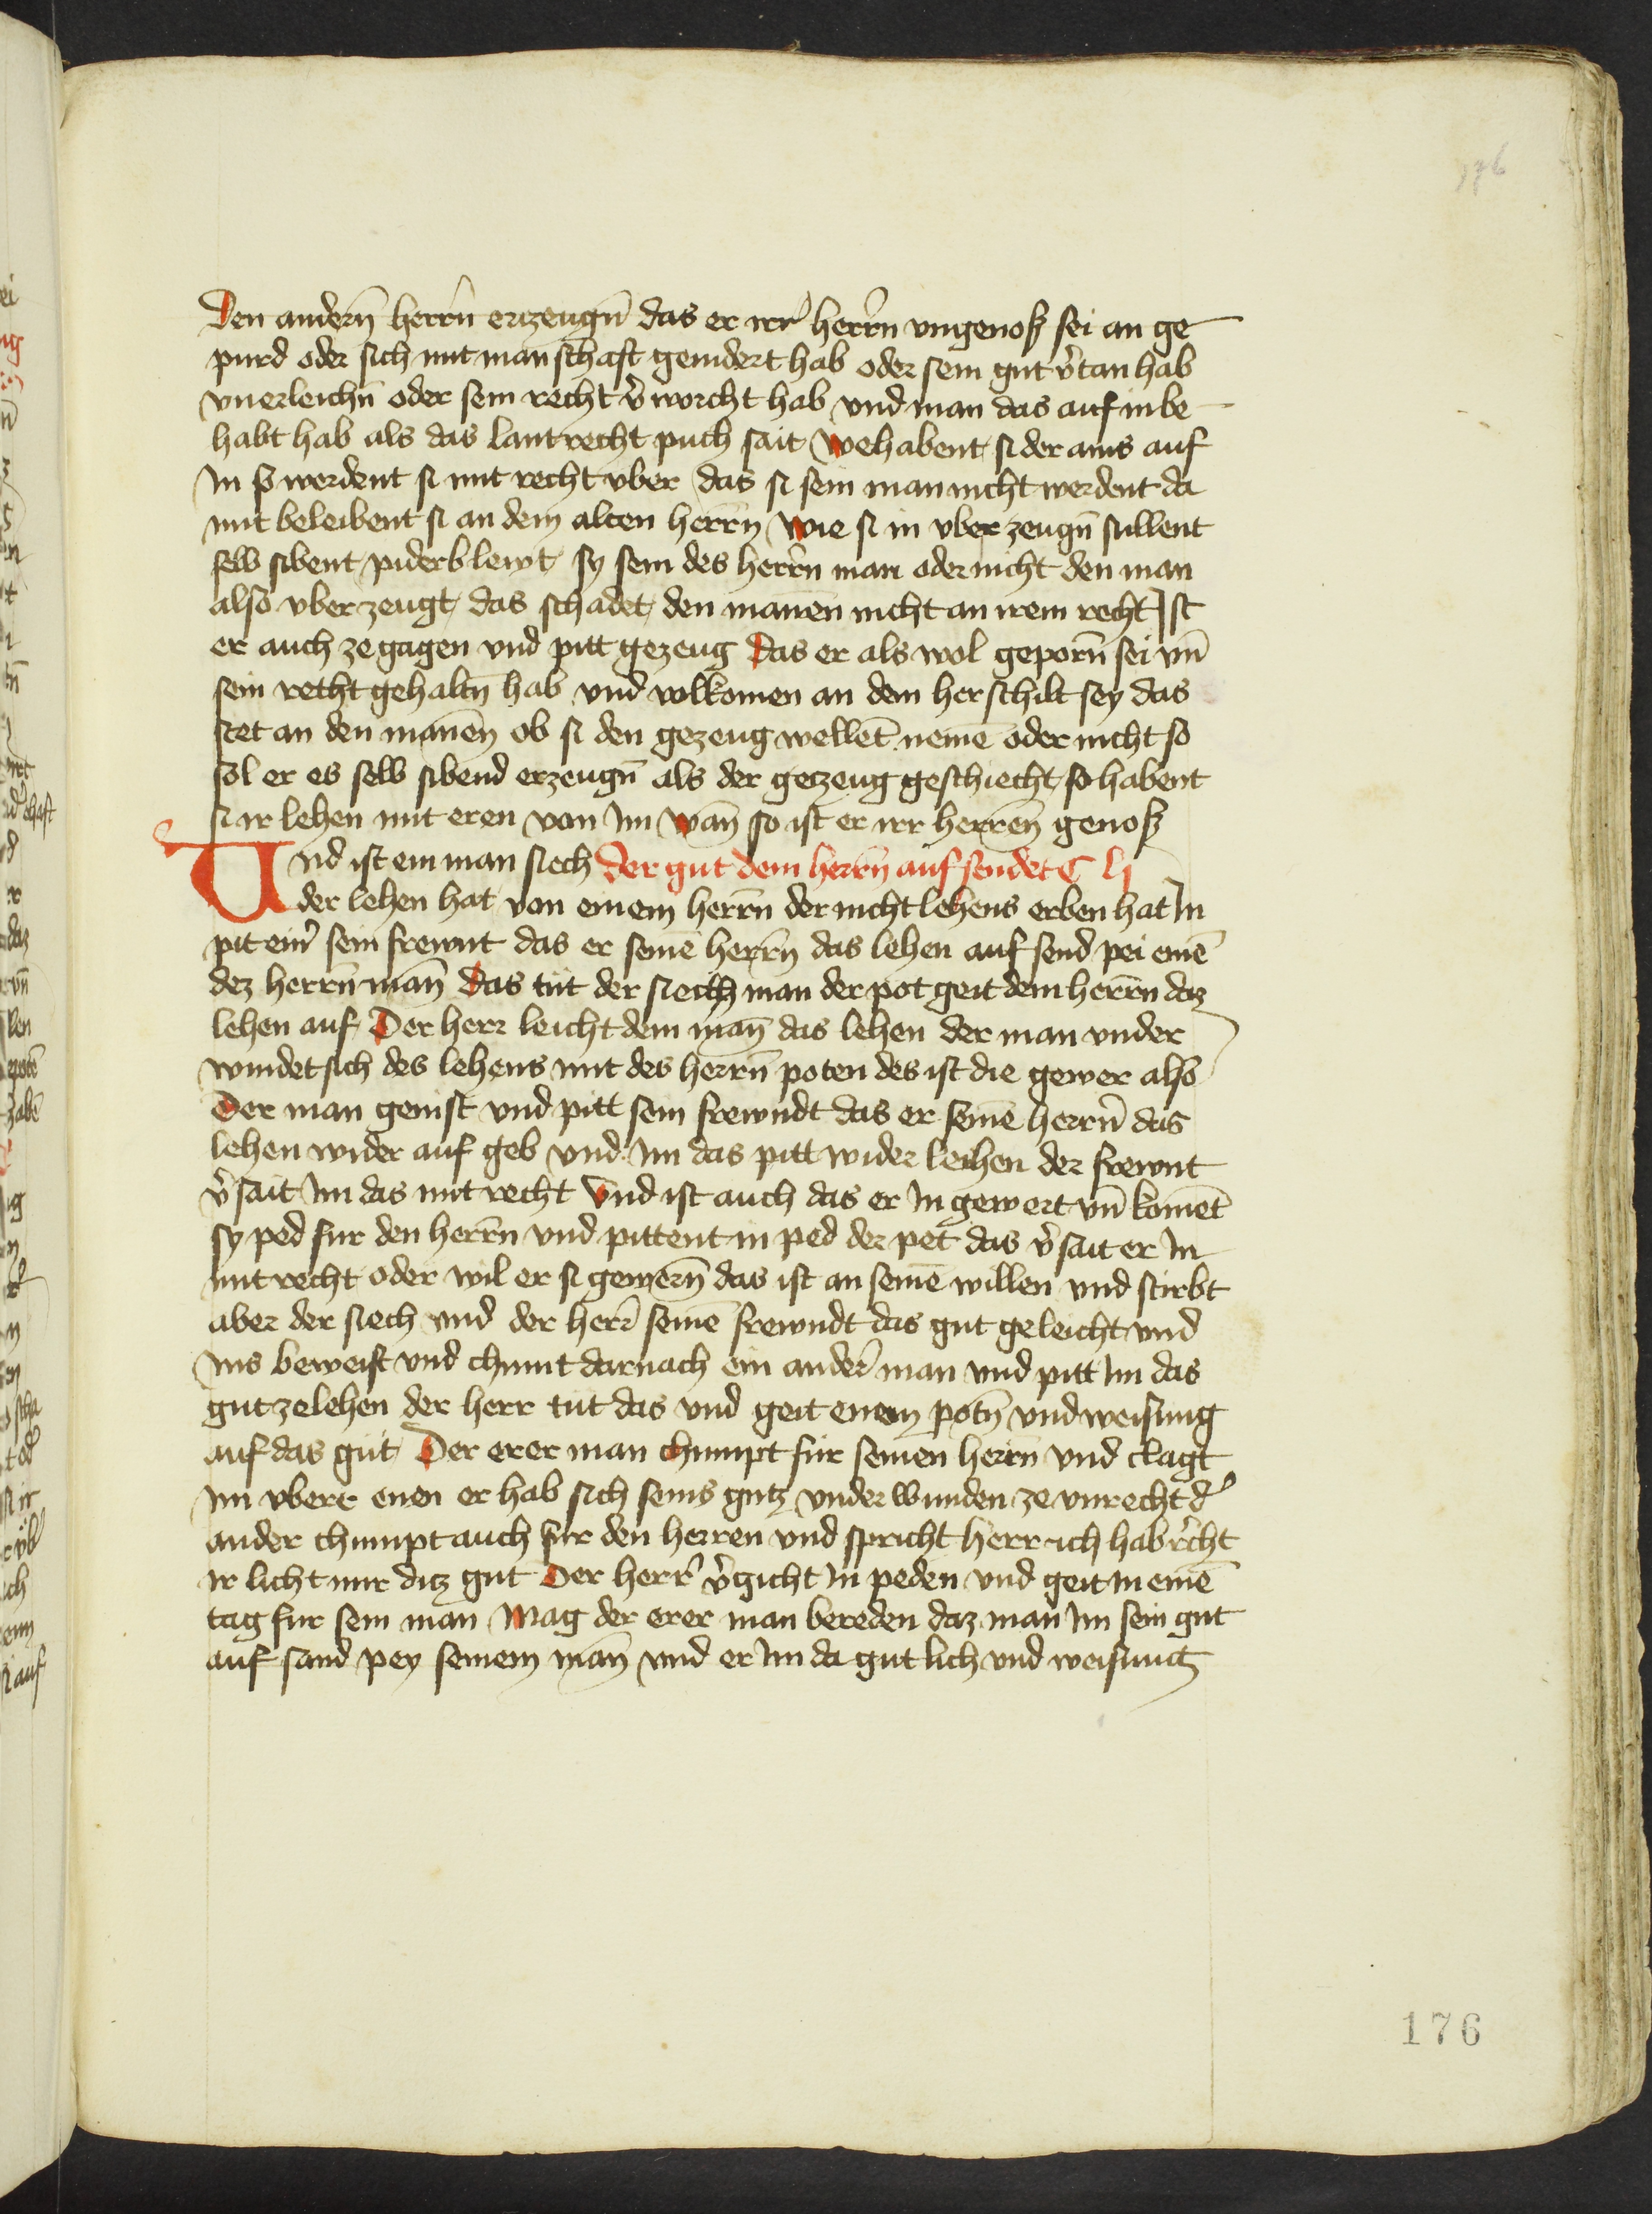 176
Den andern̄ herrn̄ erzeugn̄ das er irr herrn vngenoß sei an ge
purd oder sich mit manschaft genidert hab oder sein gut v̄tan hab
vnerleichn̄ oder sein recht v̄worcht hab vnd man das auf in be
habt hab als das lantrecht puch sait Wehabent si der ains auf
In so werdent si mit recht vber das si sein man nicht werdent da
mit beleibent si an dem alten herrn̄ Wie si in vber zeugn̄ sullent
selb sibent piderb lewt sy sein des herrn man oder nicht den man
also vber zeugt das schadet den mannen nicht an irem recht Ist
er auch ze gagen vnd pitt gezeug Das er als wol geporn̄ sei vn̄
sein recht gehaltn̄ hab vnd volkomen an dem herschilt sey das
stet an den mannen ob si den gezeug wellet̄ neme̅ oder nicht so
sol er es selb sibend erzeugn̄ als der geczeug geschiecht so habent
si ir lehen mit eren von Im Wan̄ so ist er irr herren̄ genoß
Vnd ist ein man siech Der gut dem herrn̄ auf sendet C li
der lehen hat von einem herrn̄ der nicht lehens erben hat In
pit ein̄ sein frewnt das er seine̅ herrn̄ das lehen auf send pei eine̅
dez herrn̄ man̄ Das tut der siech man der pot geit dem herrn̄ daz
lehen auf Der herr leicht dem man̄ das lehen der man vnder
windet sich des lehens mit des herrn̄ poten des ist die gewer also
Der man genist vnd pitt sein frewndt das er seine̅ herrn̄ das
lehen wider auf geb vnd Im das pitt wider leihen der frewnt
v̄sait Im das mit recht Vnd ist auch das er In gewert vn̄ komet̄
sy ped fur den herrn̄ vnd pittent in ped der pet das v̄sait er In
mit recht oder wil er si gewern̄ das ist an seine̅ willen vnd stirbt
aber der siech vnd der herr seine̅ frewndt das gut geleicht vnd
Ins beweist vnd chumt darnach ein ander man vnd pitt Im das
gut ze lehen der herr tut das vnd geit enem potn̄ vnd weisung
auf das gut Der erer man chumpt fur seinen herrn vnd clagt
Im vberr enen er hab sich seins gutz vnder wunden ze vnrecht d̄
ander chumpt auch fur den herren vnd spricht herr ich hab r̄cht
ir licht mir ditz gut Der herr v̄gicht In peden vnd geit In eine̅
tag fur sein man Mag der erer man bereden daz man Im sein gut
auf sand pey seinem man̄ vnd er Im da gut lich vnd weisung
176